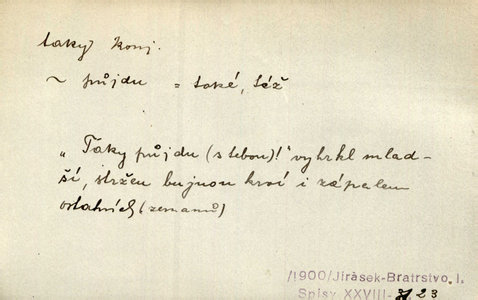 taky konj.
~ půjdu = také, též
„Taky půjdu (s tebou)!" vyhrkl mlad-
ší, stržen bujnou krví i zápalem
ostatních (zemanů)
/1900/Jirásek-Bratrstvo I.
Spisy XXVIII- 23